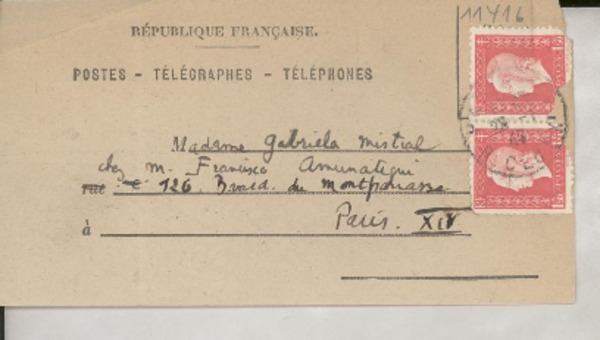 11416
RÉPUBLIQUE FRANÇAISE.
POSTES - TÉLÉGRAPHES - TÉLÉPHONES
Madame Gabriela Mistral
chez M. Francisco Amunategui
rue 126. Bouled. du Montparnasse
à Paris. XIV